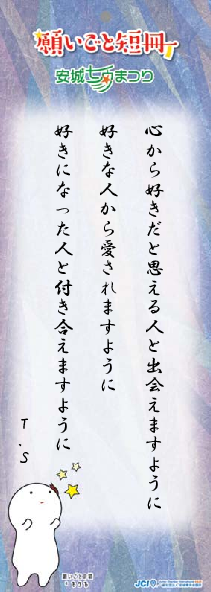 願いごと短冊
安城七夕まつり
心から好きだと思える人と出会えますように
好きな人から愛されますように
好きになった人と付き合えますように
T.S
願いごとの国
JCI